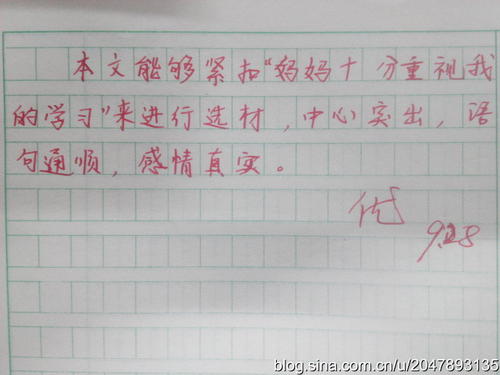 本文能够紧扣“妈妈十分重视我
的学习”来进行选材，中心突出，语
句通顺，感情真实。
优
9.28
blog.sina.com.cn/u/2047893135